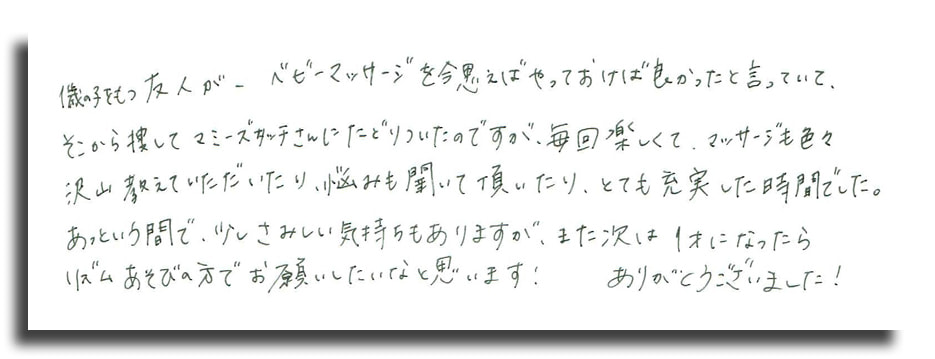 歳の子をもつ友人が、ベビーマッサージを今思えばやっておけば良かったと言っていて、
そこから捜してマミーズタッチさんにたどりついたのですが、毎回楽しくて、マッサージも色々
沢山教えていただいたり、悩みも聞いて頂いたり、とても充実した時間でした。
あっという間で、少しさみしい気持ちもありますが、また次は1才になったら
リズムあそびの方でお願いしたいなと思います! ありがとうございました!